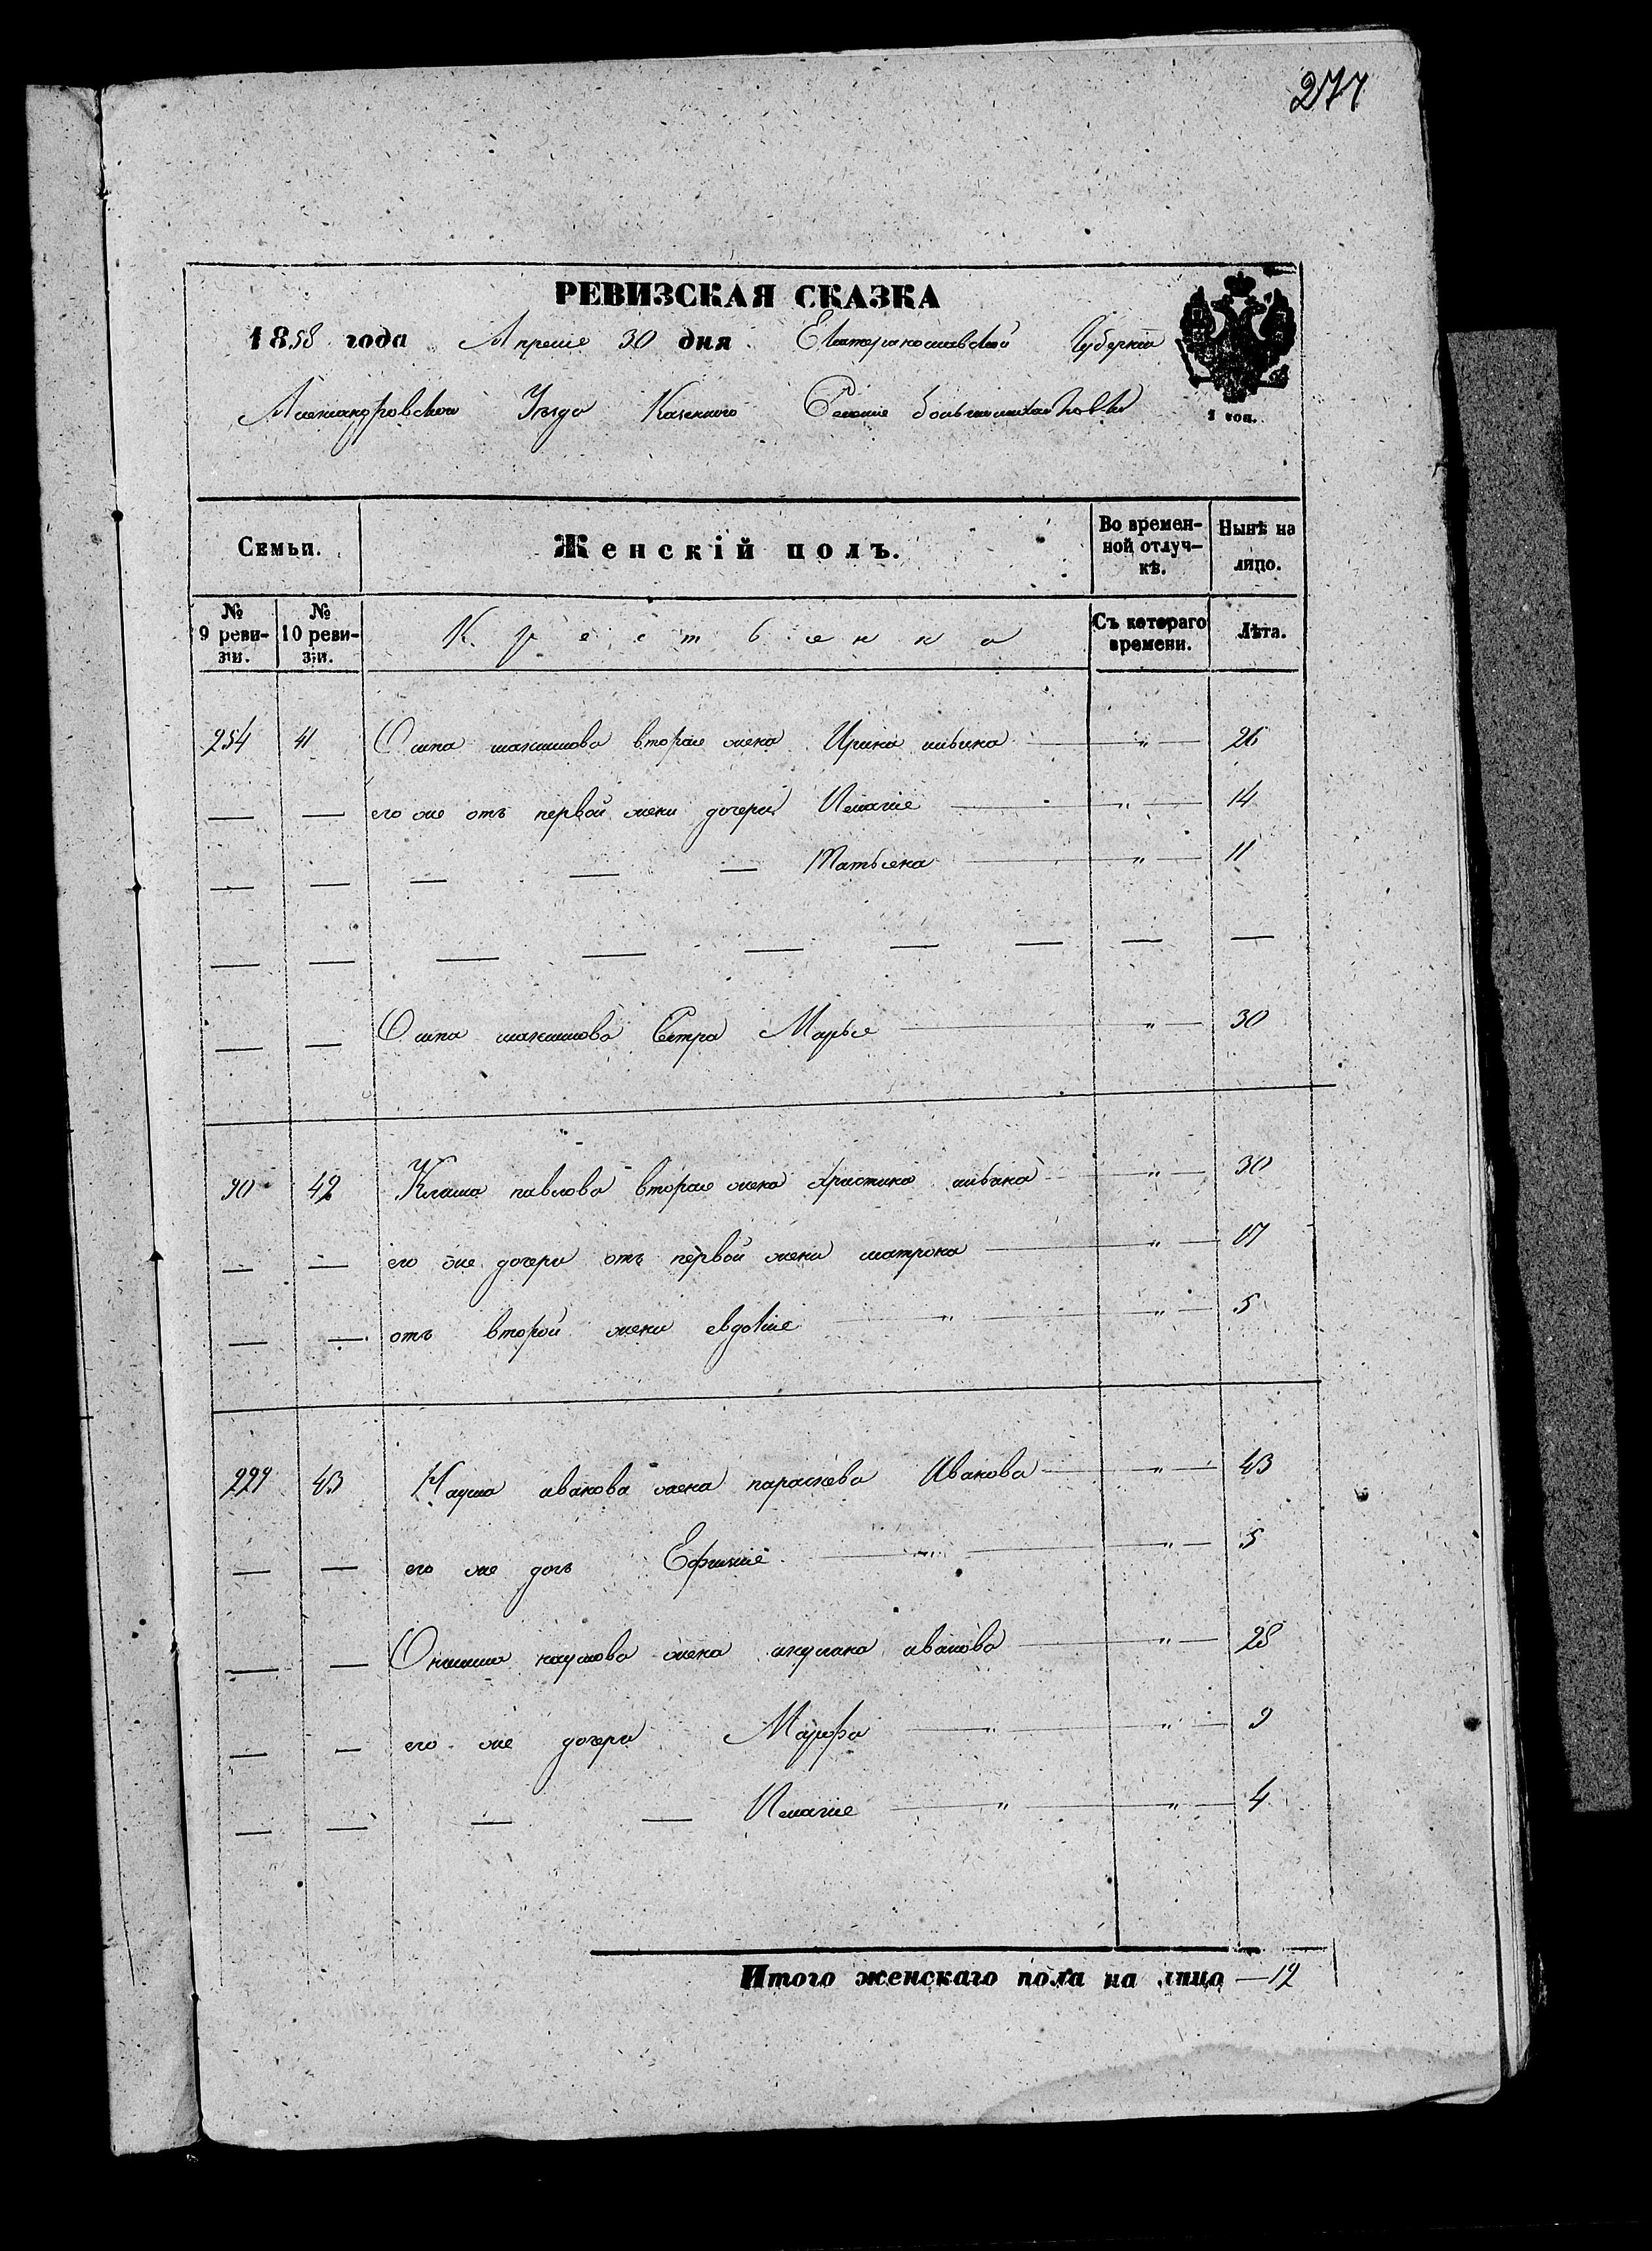 277
РЕВИЗСКАЯ СКАЗКА
1858 года Апреля 30 дня Екатеринославской Губернии
Александровского Уезда Казенного Селения Большемихайловки
1 коп.
Семьи. Женскій полъ. Во времен-ной отлуч-кѣ. Нынѣ на лицо.
№ 9 реви-зіи. № 10 реви-зіи. Крестьянка Съ котораго времени. Лѣта.
254 41 Осипа максимова вторая жена Ирина ильина — " — 26
— — его же отъ первой жени дочери Пелагія — " — 14
— — — — — Татьяна — " — 11
— — — — — — — — —
— — Осипа максимова Сестра Марья — " — 30
90 42 павлова вторая жена христина ильина — " — 30
— — его же дочери отъ первой жени матрона — " — 17
— — отъ второй жени евдокия — " — " — 5
229 43 Наума иванова жена параскева Иванова — " — 43
— — его же дочь Ефимия — " — " — 5
— — Онисима наумова жена акулина иванова — " — 28
— — его же дочери Марфа — " — " — 9
— — — — Пелагия — " — " — 4
Итого женскаго пола на лицо — 12